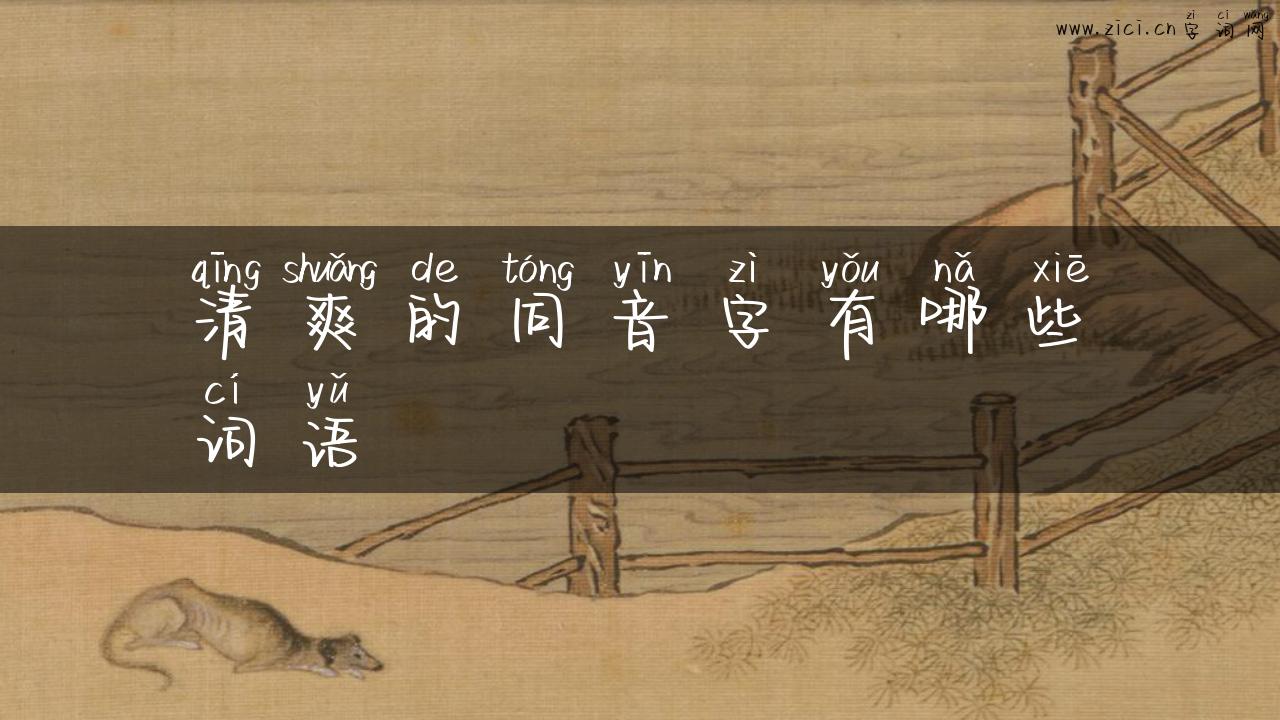 zì cí wǎng
www.zici.cn 字词网
qīng shuǎng de tóng yīn zì yǒu nǎ xiē
清爽的同音字有哪些
cí yǔ
词语